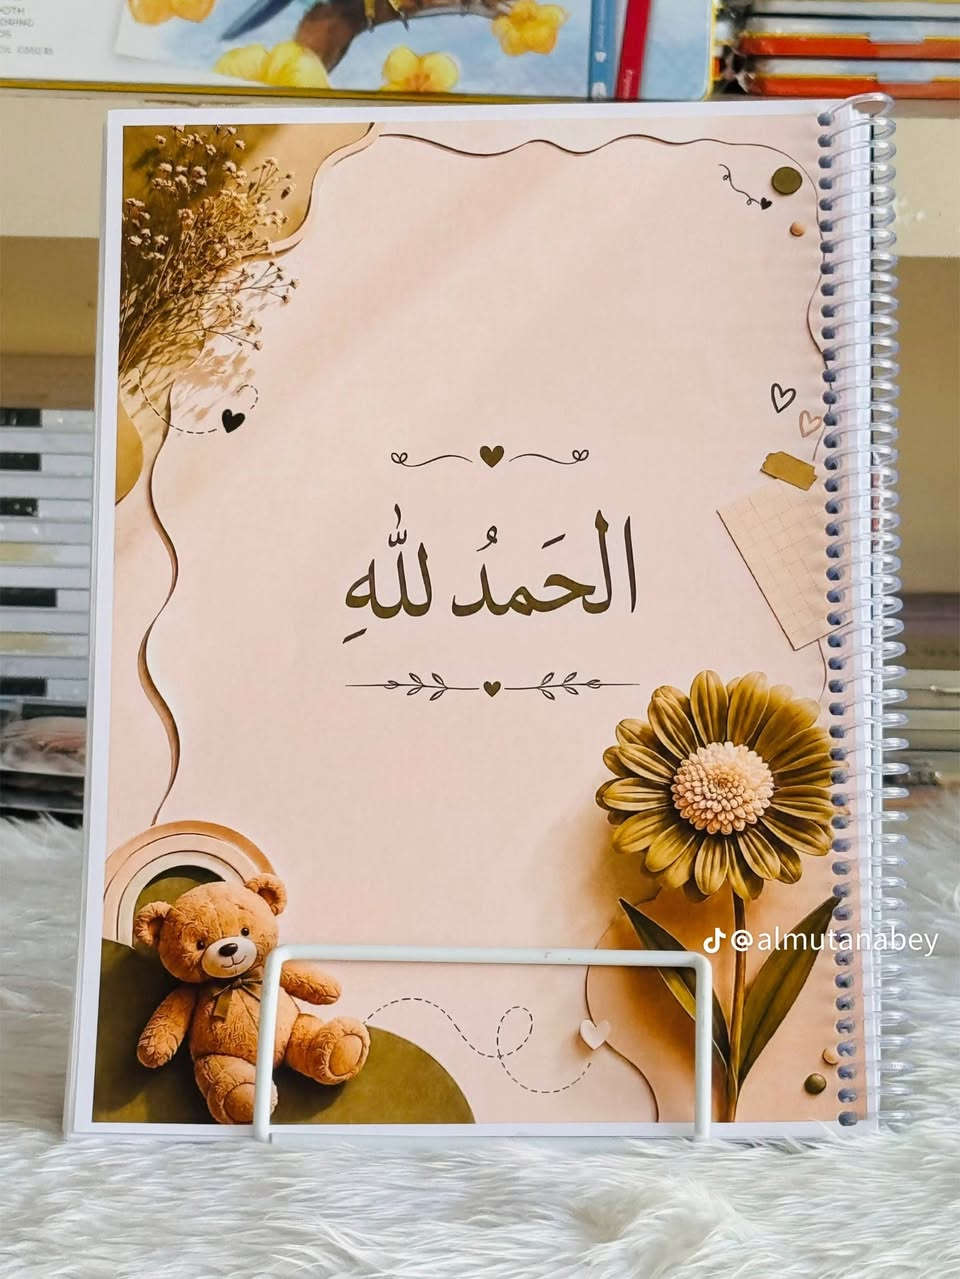 الحَمدُ للهِ
@almutanabey